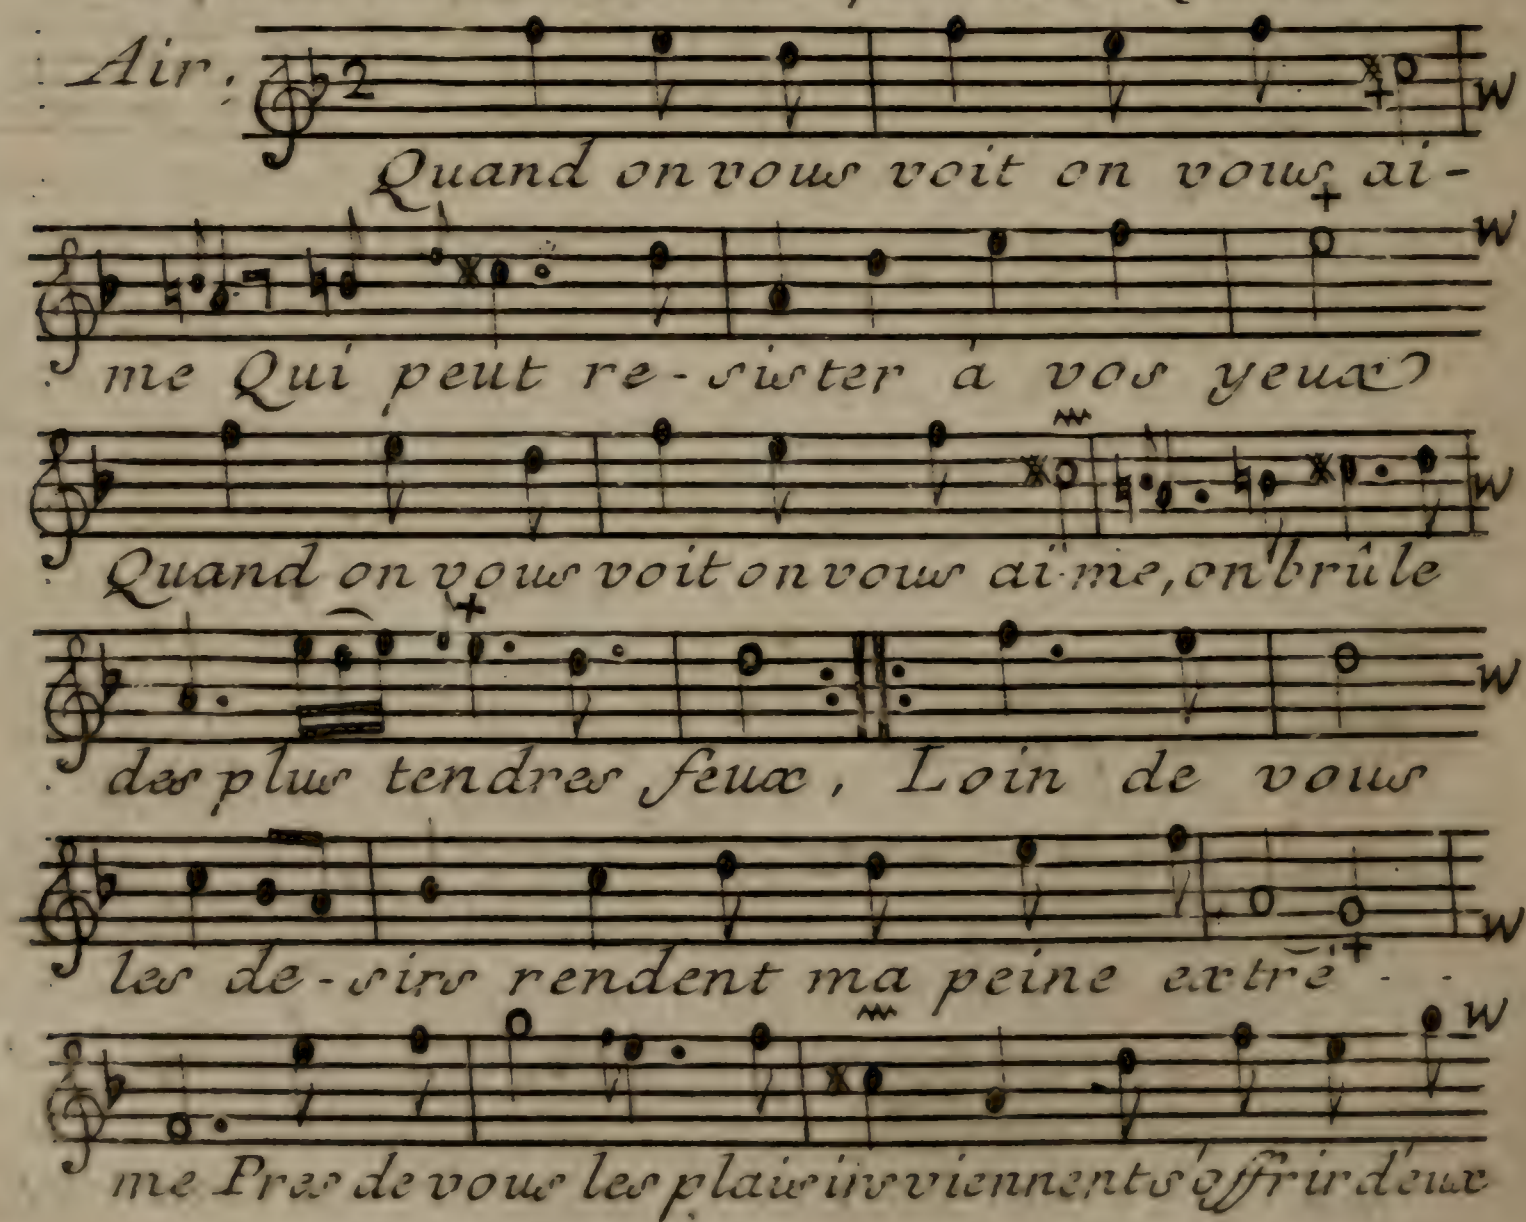 Air.
2
Quand on vous voit on vous ai-
me Qui peut re-sister à vos yeux
Quand on vous voit on vous aï-me, on brûle
des plus tendres feux, Loin de vous
les de-sirs rendent ma peine extrê - -
me Pres de vous les plaisirs viennent s'offrir d'eux